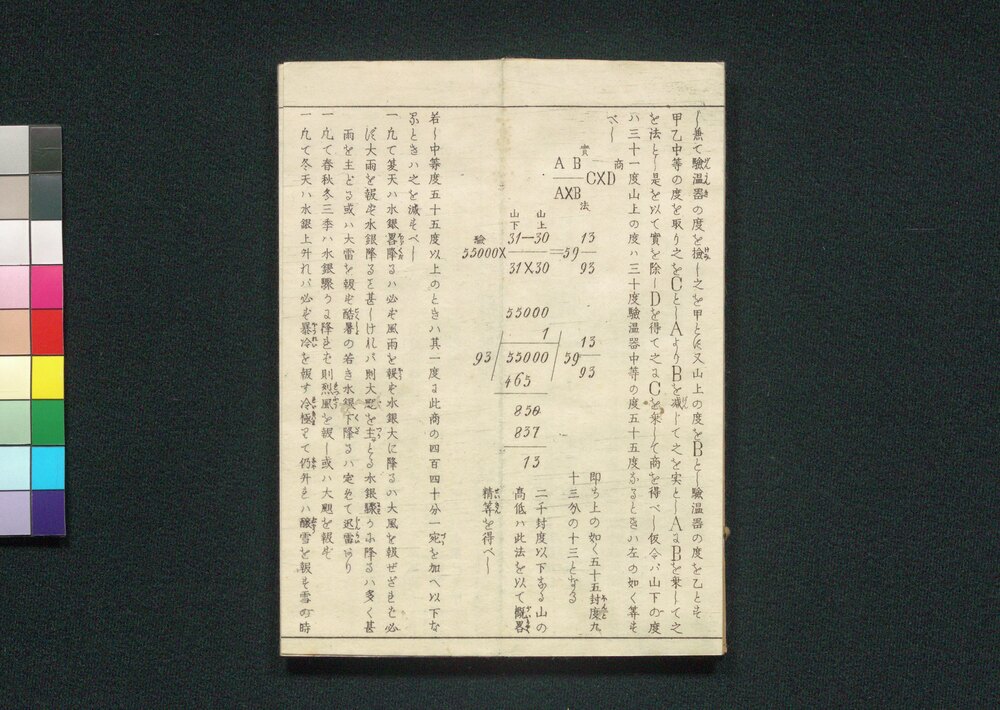 し兼て驗温器の度を撿し之を甲とし又山上の度をBとし驗温器の度を乙とも
甲乙中等の度を取り之をCとしAよりBを減じて之を実としAにBを乗して之
を法とし是を以て實を除しDを得て之にCを乗して商を得べし仮令バ山下の度
ハ三十一度山上の度ハ三十度驗温器中等の度五十五度なるときハ左の如く等も
べし
實 商
A B
AXB
CXD
法
山下 山上
驗
55000X 31—30 = 59 13
31X30 93
55000
1
93 55000 59 13
465 93
850
837
13
即ち上の如く五十五封度九
十三分の十三となる
二千封度以下なる山の
高低ハ此法を以て概畧
精等を得べし
若し中等度五十五度以上のときハ其一度に此商の四百四十分一宛を加へ以下な
るときハ之を減もべし
一凡て夏天ハ水銀畧降るハ必も風雨を報も水銀大に降るハ大風を報ぜざるも必
ず大雨を報も水銀降るを甚しけれバ則大颶を主どる水銀驟かに降るハ多く甚
雨を主どる或ハ大雷を報も酷暑の若き水銀下降るハ定めて迅雷あり
一凡て春秋冬三季ハ水銀驟かに降るも則烈風を報し或ハ大颶を報も
一凡て冬天ハ水銀上升れバ必も暴冷を報す冷極りて仍升るハ醸雪を報も雪の時